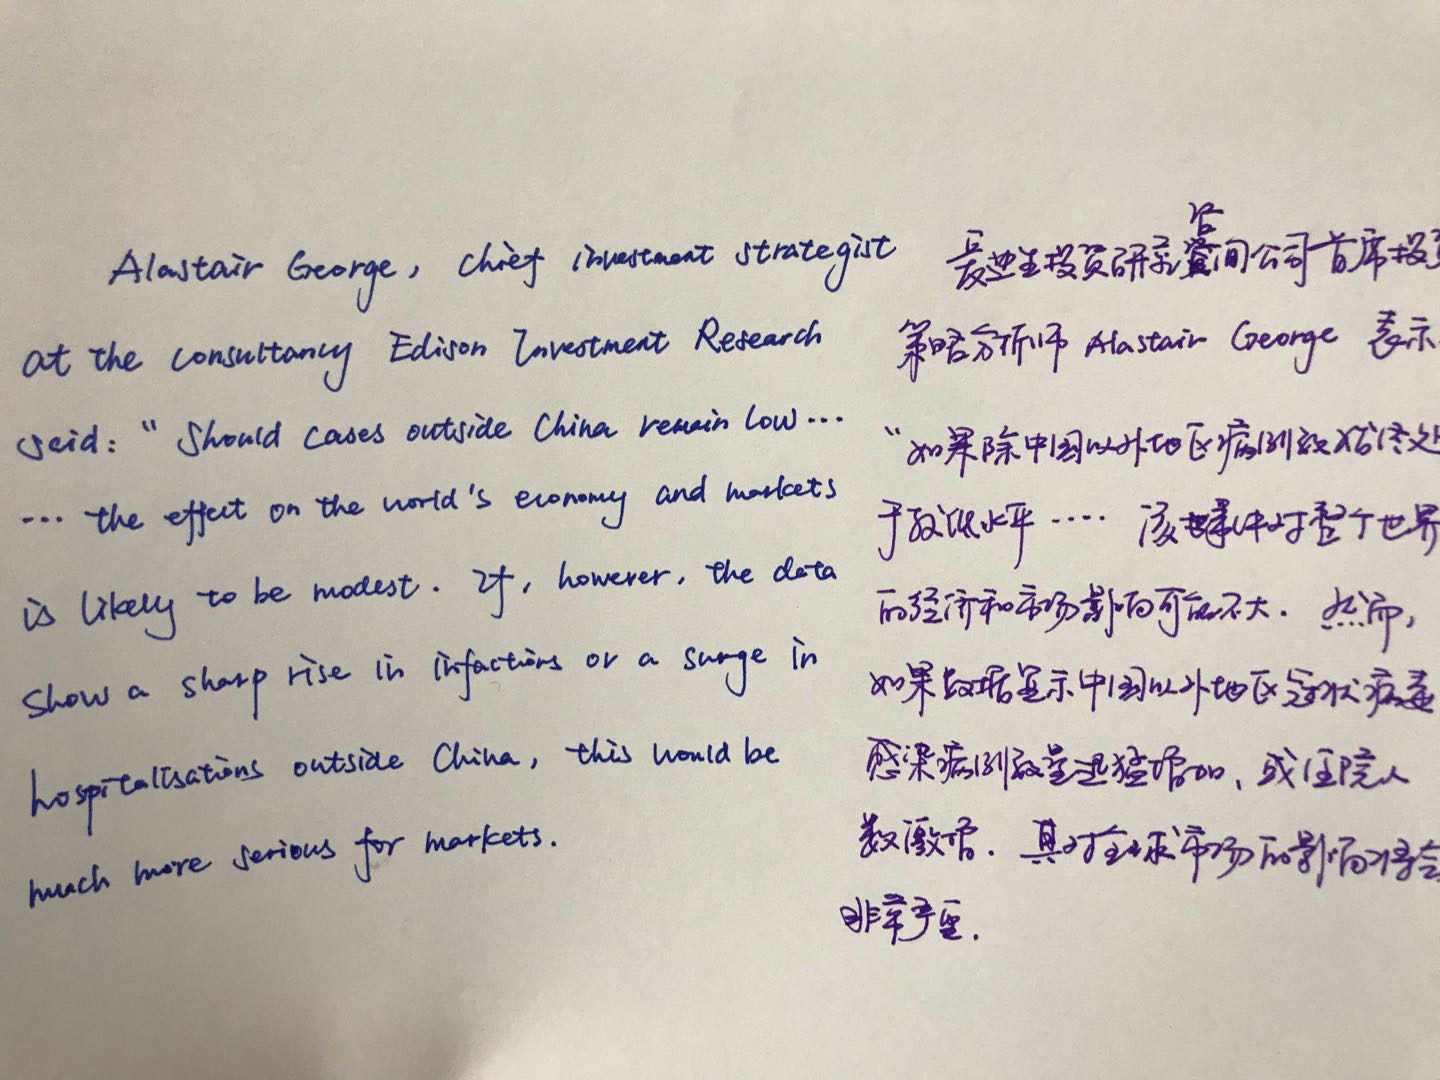 Alastair George, chief investment strategist
at the consultancy Edison Investment Research
said: "Should cases outside China remain low...
... the effect on the world's economy and markets
is likely to be modest. If, however, the data
show a sharp rise in infactions or a surge in
hospitalisations outside China, this would be
much more serious for markets.
爱迪生投资研究咨询公司首席投资
策略分析师 Alastair George 表示
"如果除中国以外地区病例数始终处
于较低水平…… 该事件对整个世界
的经济和市场影响可能不大. 然而,
如果数据显示中国以外地区冠状病毒
感染病例数量迅猛增加、或住院人
数激增. 其对全球市场的影响将会
非常严重.